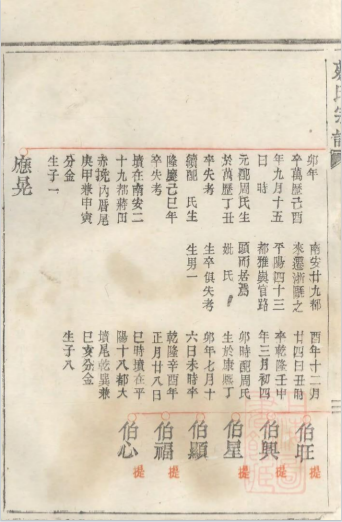 卯年
卒萬歷己酉
年九月十五
日　時
元配周氏生
於萬歷丁丑
卒失考
續配　氏生
隆慶己巳年
卒失考
墳在南安二
十九都蔣田
赤挽內厝尾
庚甲兼申寅
分金
生子一
應晃
南安廿九都
來遷浙歷之
平陽四十三
都雅奧官路
頭而居焉
妣　氏
生卒俱失考
生男一
酉年十二月
廿四日丑時
卒乾隆壬申
年三月初四
卯時配周氏
生於康熙丁
卯年七月十
六日未時卒
乾隆辛酉年
正月廿八日
巳時墳在平
陽十八都大
墳尾乾巽兼
巳亥分金
生子八
伯旺 提
伯興 提
伯星 提
伯顯 提
伯福 提
伯心 提